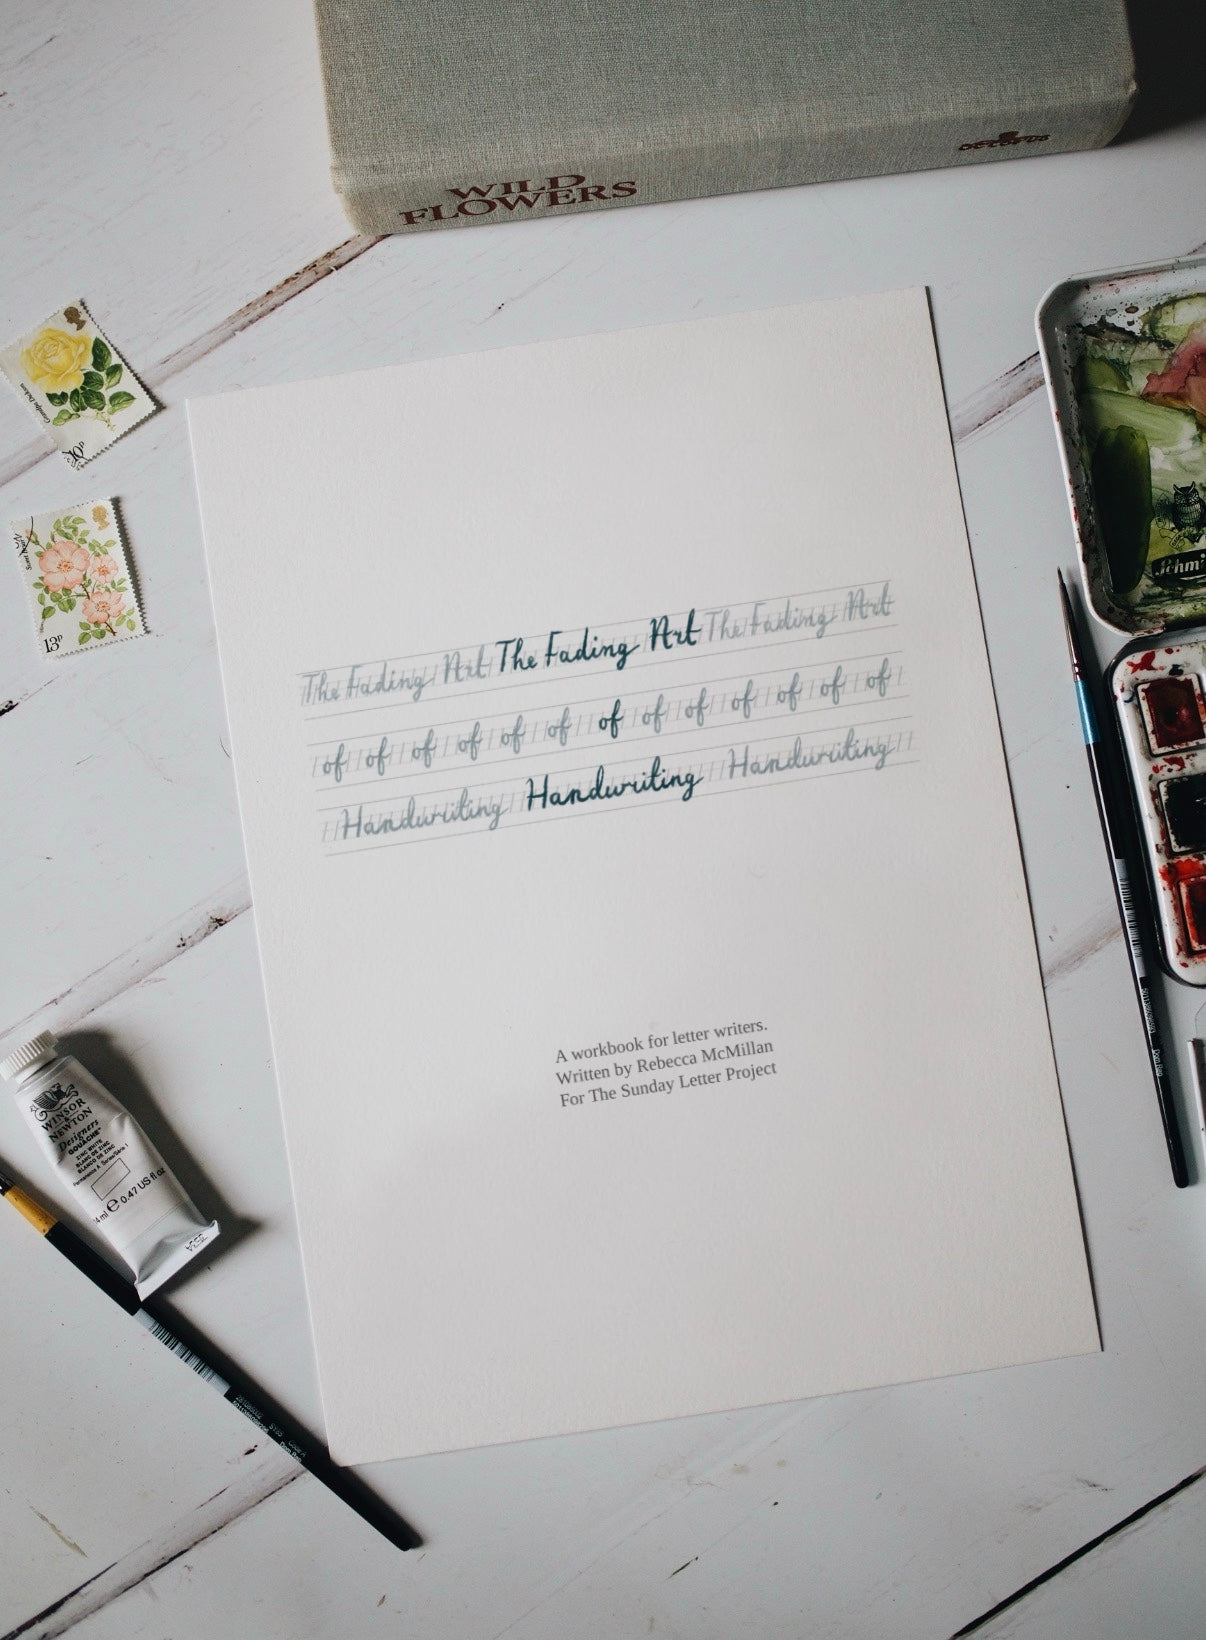 WILD
FLOWERS
OCTOPUS
10P
13P
The Fading Art The Fading Art The Fading Art
of of of of of of of of of of of of of
Handwriting Handwriting Handwriting
A workbook for letter writers.
Written by Rebecca McMillan
For The Sunday Letter Project
WINSOR
&
NEWTON
Designers
GOUACHE
ZINC WHITE
BLANC DE ZINC
BLANCO DE ZINC
Permanence A Series/Série 1
14 ml e 0.47 US fl oz
Schmi